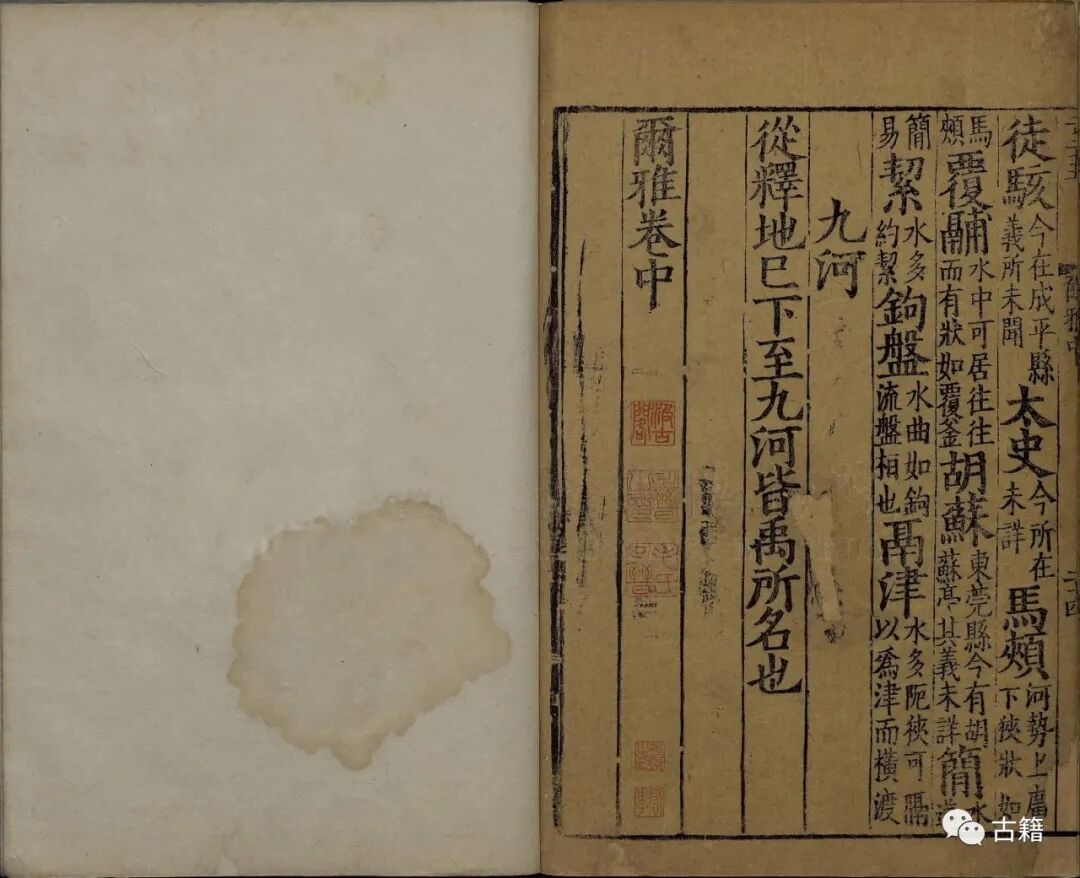 徒駭今在成平縣義所未聞太史今所在未詳馬頰河勢上廣下狹狀如
馬頰覆鬴水中可居往往而有狀如覆釜胡蘇東莞縣今有胡蘇亭其義未詳簡水道
簡易絜水多約絜鉤盤水曲如鉤流盤桓也鬲津水多阨狹可隔以爲津而橫渡
九河
從釋地已下至九河皆禹所名也
爾雅卷中
汲古閣
古籍